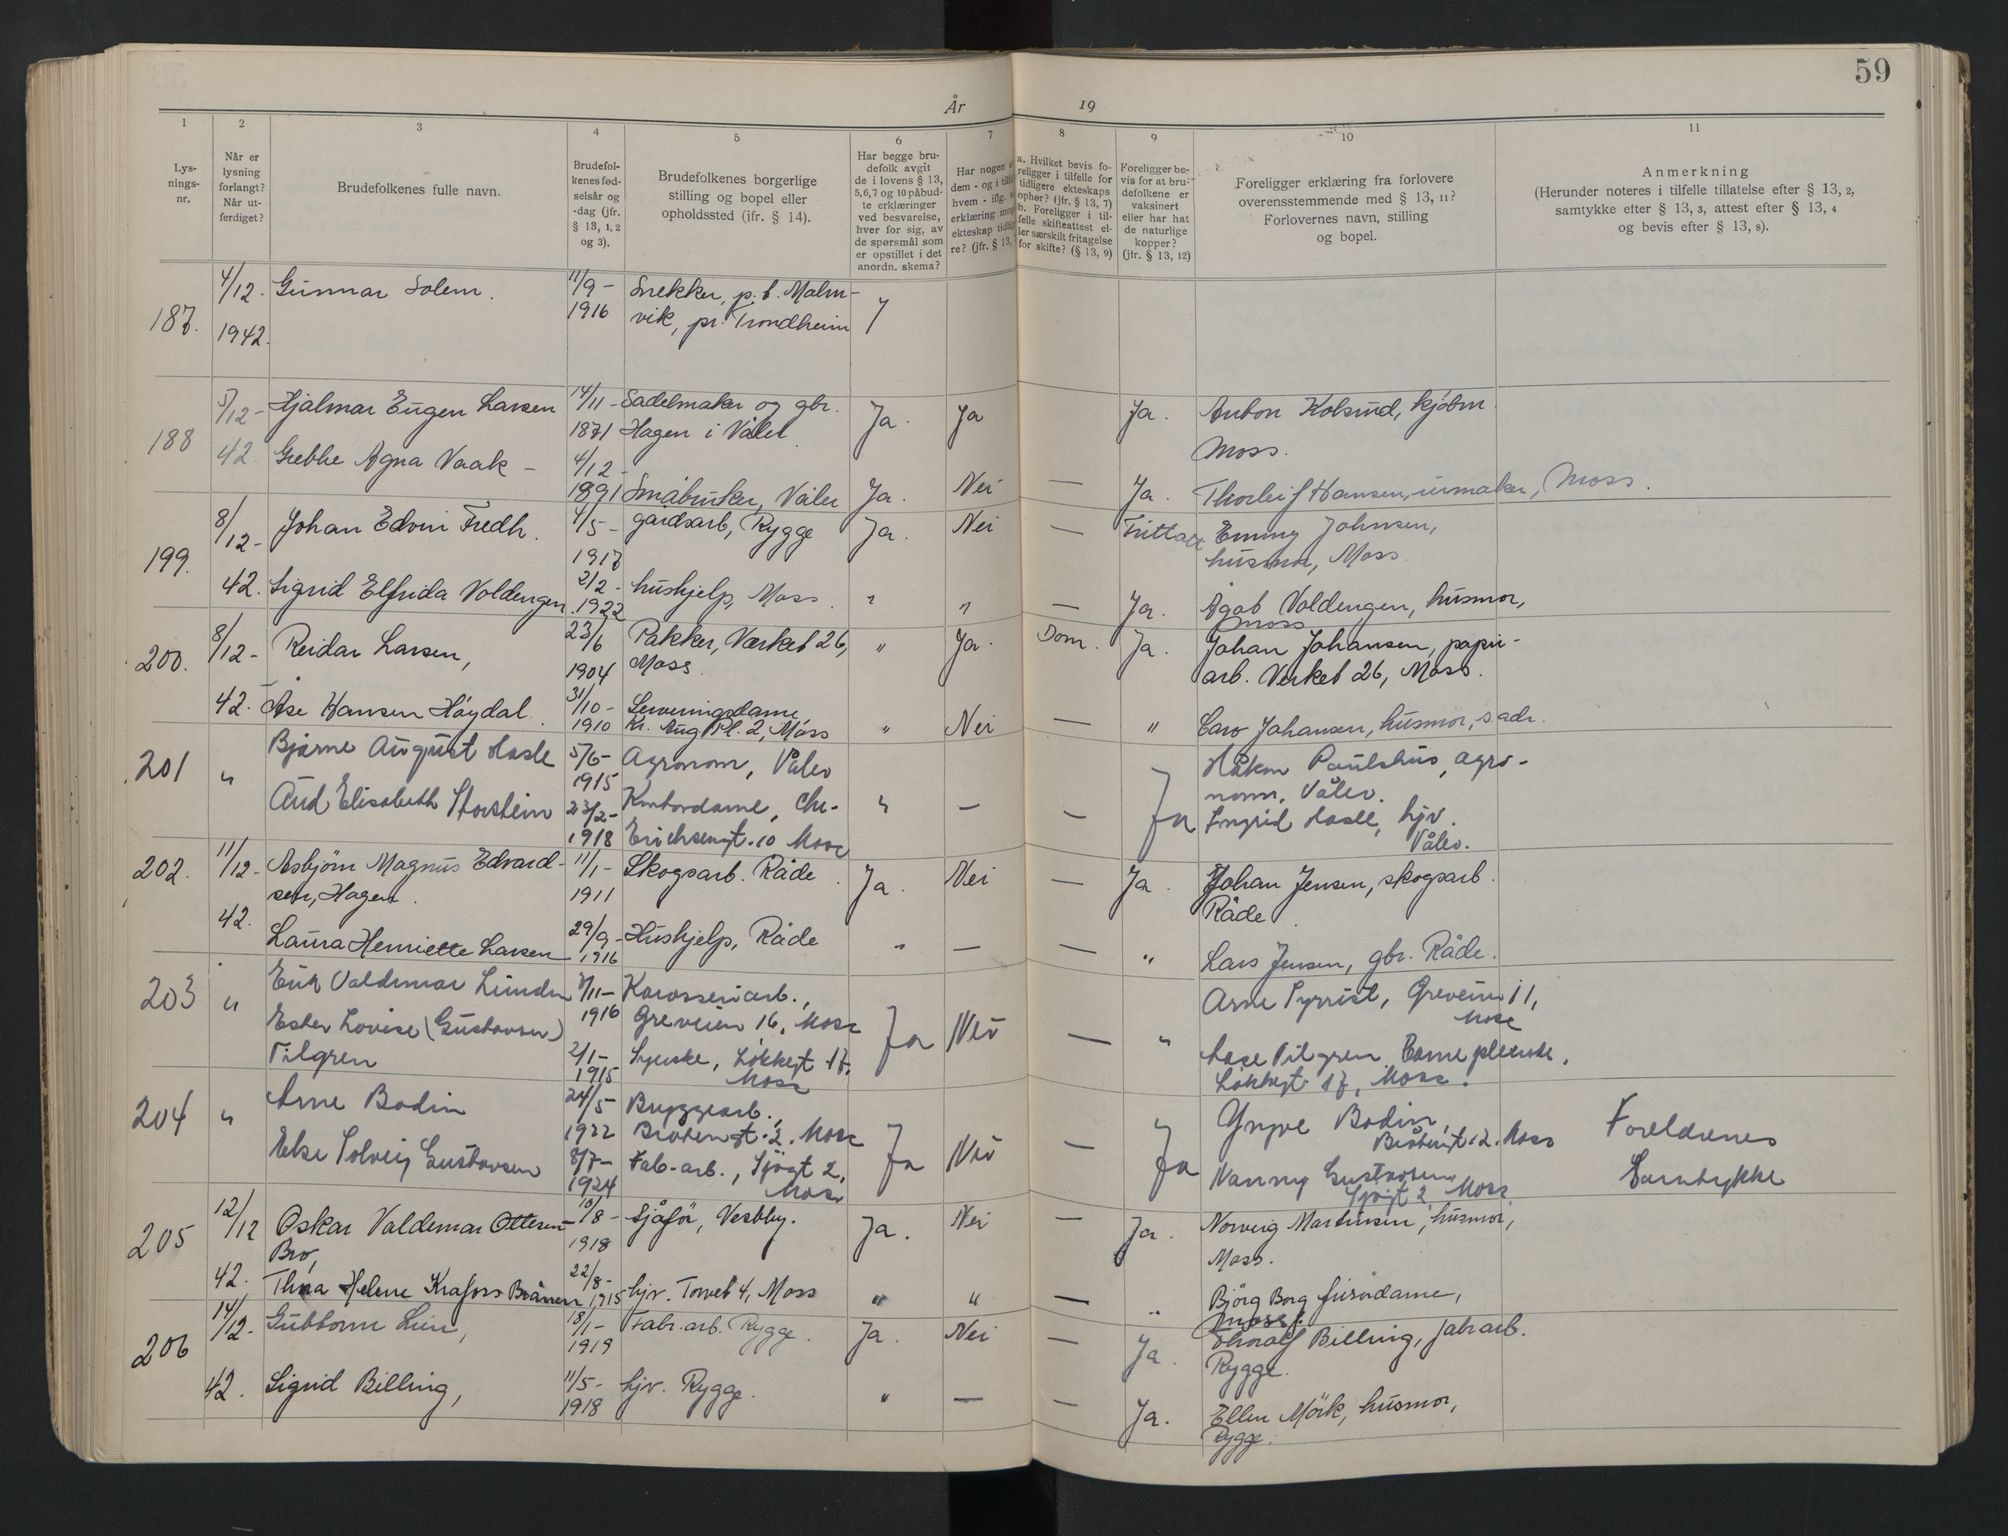 59
År 19
1 2 3 4 5 6 7 8 9 10 11
Lys-
nings-
nr.
Når er
lysning
forlangt?
Når ut-
ferdiget?
Brudefolkenes fulle navn.
Brudefol-
kenes fød-
selsår og
-dag (jfr.
§ 13, 1, 2
og 3).
Brudefolkenes borgerlige
stilling og bopel eller
opholdssted (ifr. § 14).
Har begge bru-
defolk avgit
de i lovens § 13,
5,6,7 og 10 påbud-
te erklæringer
ved besvarelse,
hver for sig, av
de spørsmål som
er opstillet i det
anordn. skema?
Har nogen a
dem - og i tilfe
hvem - iflg.
erklæring inng
ekteskap tidlig
re? (jfr. § 13,
a. Hvilket bevis fo-
religger i tilfelle for
tidligere ekteskaps
ophør? (jfr. § 13, 7)
b. Foreligger i til-
felle skifteattest el-
ler særskilt fritagelse
for skifte? (§ 13, 9)
Foreligger be-
vis for at bru-
defolkene er
vaksinert
eller har hat
de naturlige
kopper?
(jtr. § 13, 12)
Foreligger erklæring fra forlovere
overensstemmende med § 13, 11?
Forlovernes navn, stilling
og bopel.
Anmerkning
(Herunder noteres i tilfelle tillatelse efter § 13, 2,
samtykke efter § 13, 3, attest efter § 13, 4
og bevis efter § 13, 8).
187. 4/12. Gunnar Solem. 11/9- Snekker, p.t. Malm-
1942. 1916 vik, pr. Trondheim
188 5/12- Hjalmar Eugen Larsen 14/11- Sadelmaker og gbr. Ja. Ja Ja. Anton Kolsrud, kjøbm
1871 Hagen i Våler Moss.
42. Grethe Agna Vaak - 4/12-
1891 Småbruker, Våler Ja. Nei — Ja. Thorleif Hansen, urmaker, Moss.
199. 8/12- Johan Edvin Fredh. 4/5- gårdsarb, Rygge Ja. Nei — Frittatt Emmy Johnsen,
1917 husmor, Moss.
42. Sigrid Elfrida Voldengen 2/2- hushjelp, Moss. " " — Ja. Agot Voldengen, husmor,
1922 Moss
200. 8/12- Reidar Larsen, 23/6 Pakker, Værket 26, " Ja. Dom. Ja. Johan Johansen, papir-
1904 Moss. arb. Verket 26, Moss.
42. Åse Hansen Høydal. 31/10- Serveringsdame
1910 Kr. Aug Pl. 2, Moss " Nei — " Caro Johansen, husmor, sadr.
201 " Bjarne August Hasle 5/6- Agronom, Våler Håkon Paulshus, agro-
1915 nom, Våler.
Aud Elisabeth Storstein 23/2- Kontordame, Chr- " — — Ja Ingrid Hasle, hjv.
1918 Erichsensgt. 10 Moss Våler.
202. 11/12- Asbjørn Magnus Edvard- 11/1- Skogsarb. Råde Ja. Nei — Ja. Johan Jensen, skogsarb.
sen, Hagen. 1911 Råde
42. Laura Henriette Larsen 29/9- Hushjelp, Råde " — — " Lars Jensen, gbr. Råde.
1916
203 " Erik Valdemar Lunden 7/11- Karosseriarb., Arne Pyrrist, Greveien 11,
1916 Greveien 16, Moss Moss
Ester Lovise (Gustavsen) Ja Nei — "
Tilgren 2/1- Syerske, Løkkegt 17, Aase Tilgren, Barnepleierske,
1915 Moss Løkkegt 17, Moss.
204 " Arne Bodin 24/5- Bryggearb., Yngve Bodin,
1922 2. Moss 2. Moss Foreldrenes
Else Solveig Gustavsen 8/7- Fab-arb., Sjøgt 2, Ja Nei — Ja Nanny Gustavsen, Samtykke
1924 Moss Sjøgt 2, Moss
205 12/12 Oskar Valdemar Ottesen 10/8- Sjåfør, Vestby. Ja. Nei — Ja. Norveig Martinsen, husmor,
Bro, 1918 Moss.
42. Helene Krafoss Brånen 22/8-
1915 hjv. Torvet 4, Moss " " — " Bjørg Borg frisørdame,
Moss.
206 14/12- Guttorm Lien, 18/1- Fabr.arb. Rygge. Ja. Nei — Ja. Thoralf Billing, fabrarb.
1919 Rygge.
42. Sigrid Billing, 11/5- hjv. Rygge. " — — Ja. Ellen Mörk, husmor,
1918 Rygge.